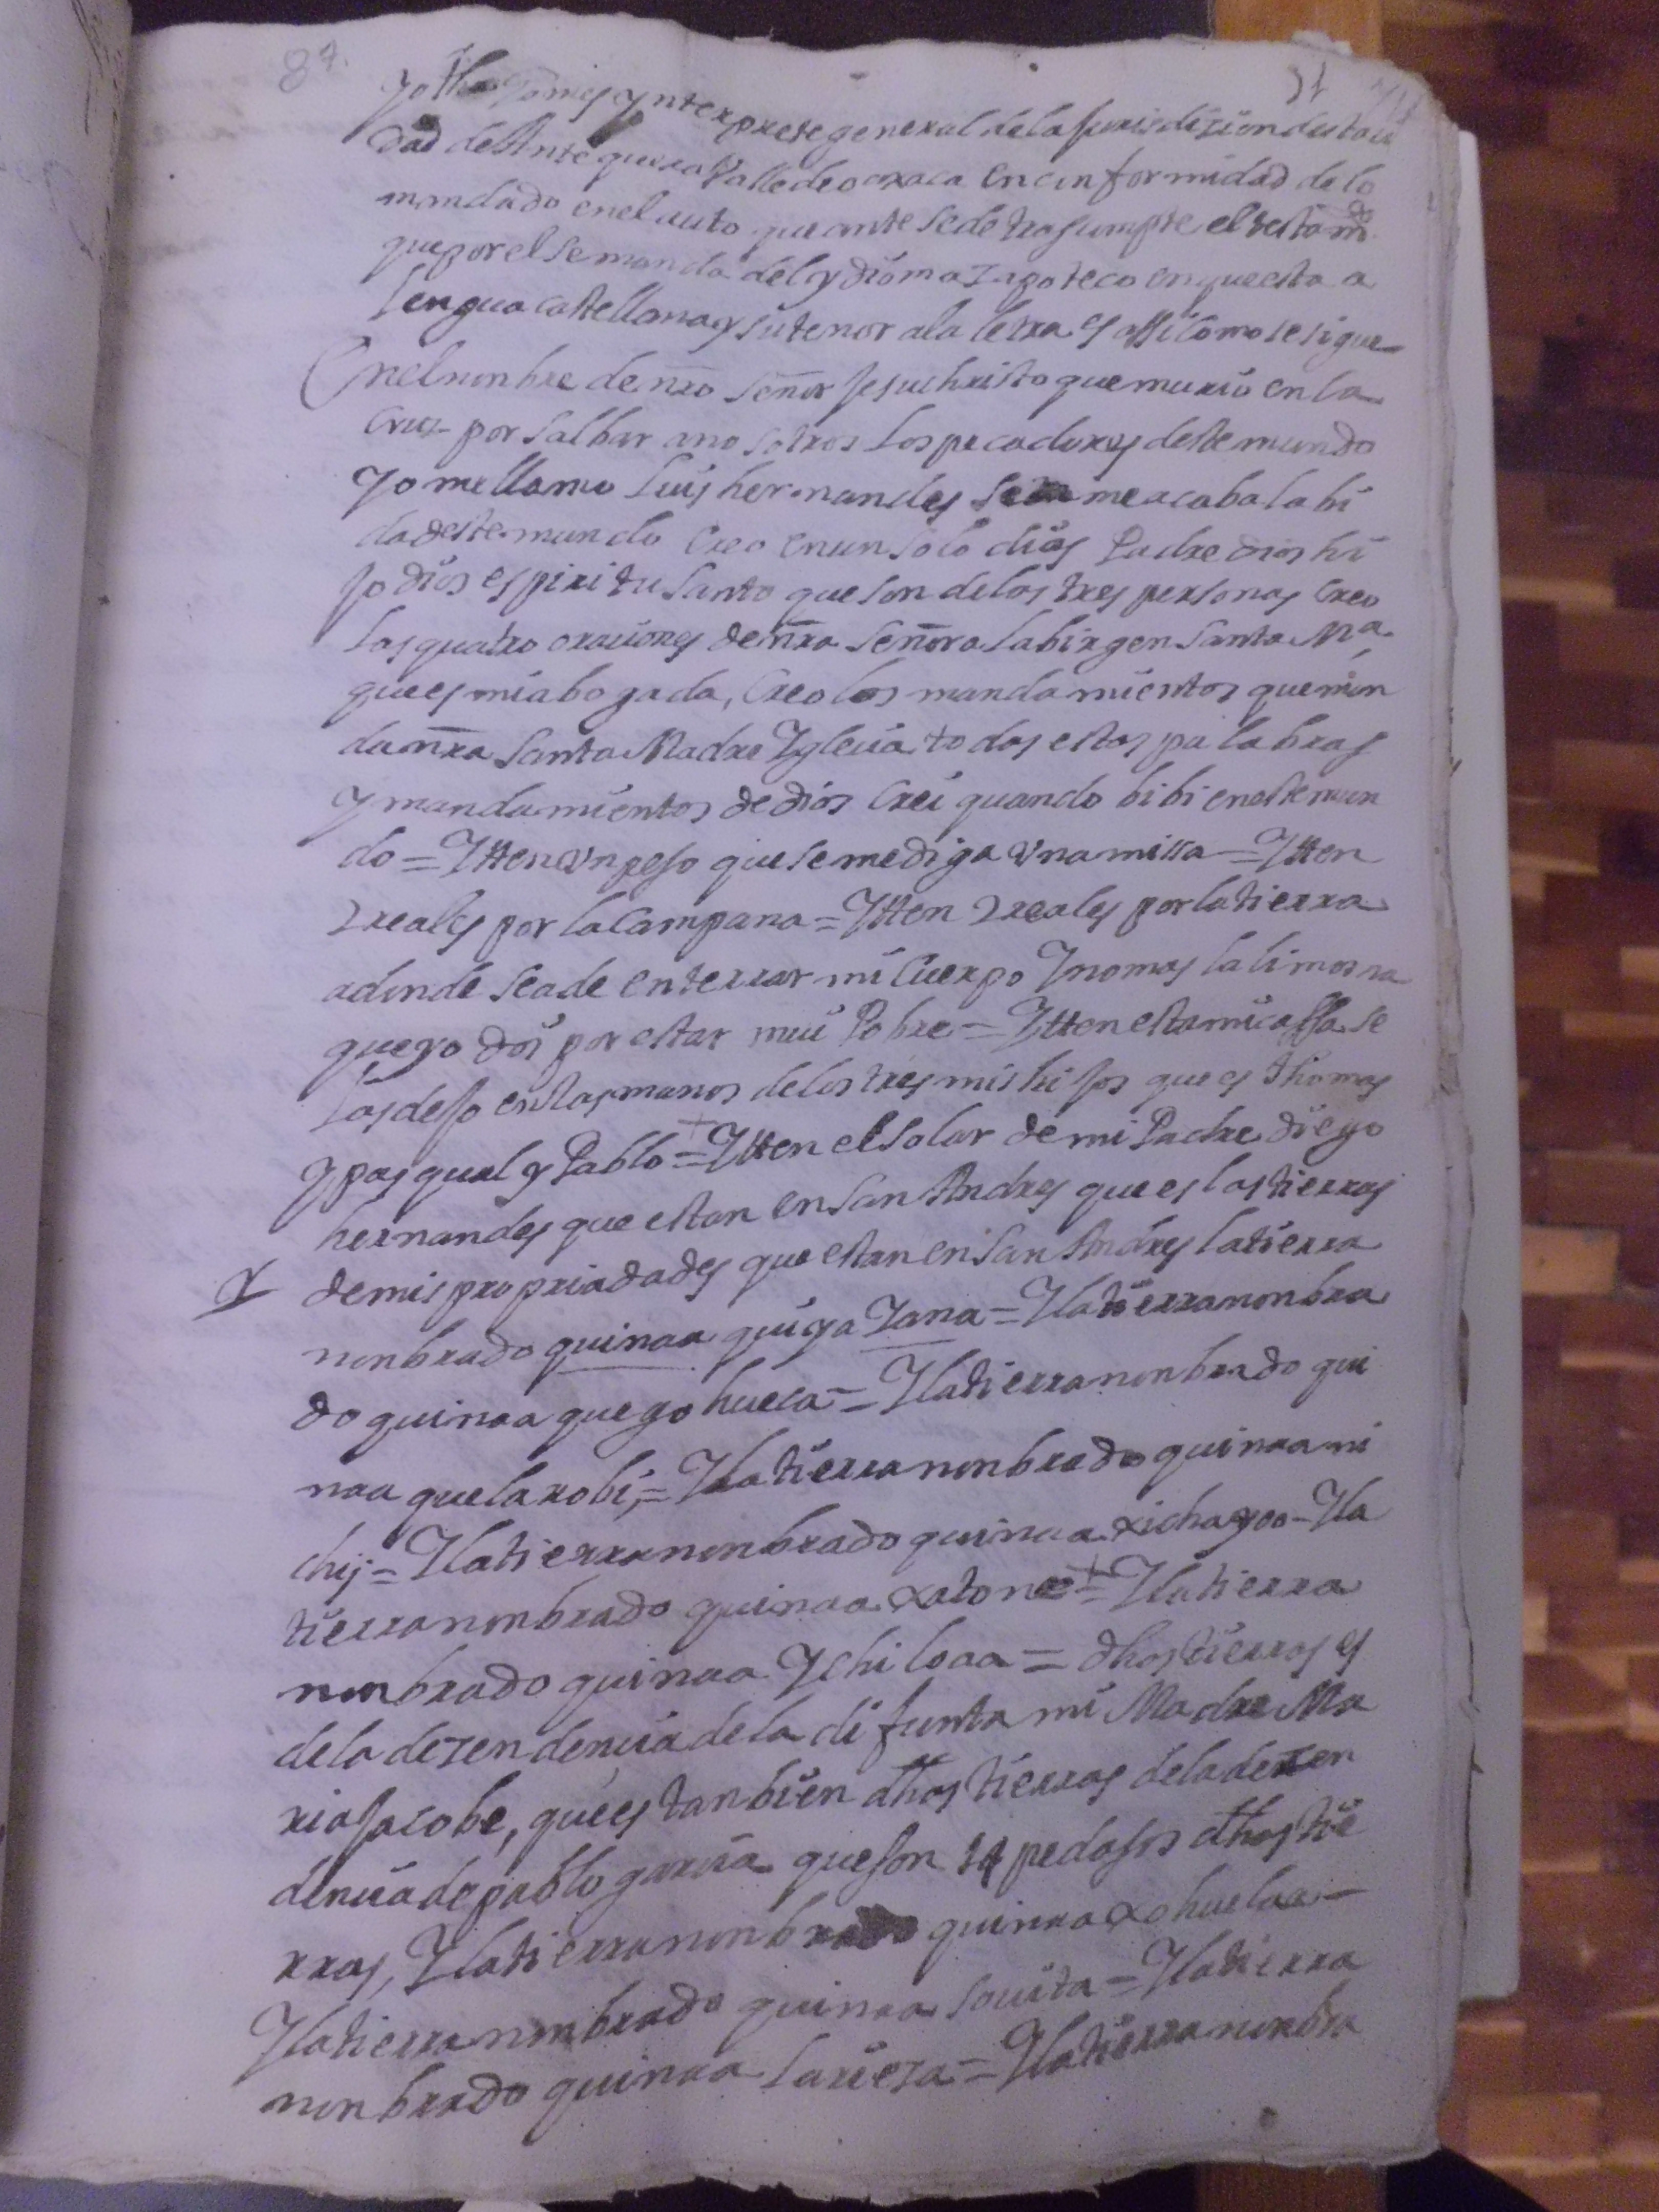 87.
31
Yo Thomas Gomes Ynterprete general de la Jurisdizion desta ciu
dad de Antequera Valle de oaxaca en cinformidad de lo
mandado en el auto que ante sede trasumpte el testamto
que por el se manda del ydioma zapoteco en que esta a
lengua castellana y su tenor a la letra es assi como se sigue
En el nonbre de nro señor Jesuchristo que murio en la
Cruz por salbar a nosotros los pecadores deste mundo
Yo me llamo Luis hernandes me acaba la bi
da deste mundo Creo en un solo dios Padre dios hi
jo dios espiritu santo que son de las tres personas Creo
las quatro oraciones de nra señora la birgen santa Ma.
que es mi abogada, Creo los mandamientos que man
da nra santa Madre Yglecia todas estas palabras
y mandamientos de dios Crei quando bibi en este mun
do = Ytten un peso que se me diga una missa = Ytten
2 reales por la Campana = Ytten 2 reales por la tierra
adinde se a de enterrar mi Cuerpo Y no mas la limosna
que yo doi por estar mui Pobre = Ytten esta mi cassa se
las dejo en las manos de los tres mis hijos que es thomas
y pasqual y Pablo = Ytten el solar de mi Padre diego
hernandes que estan en San Andres que es las tierras
de mis propriadades que estan en San Andres la tierra
nonbrado quinaa quiya zana = Y la tierra nonbra
do quinaa quego hueca = Y la tierra nonbrado qui
naa quelarobi, = Y la tierra nonbrado quinaa ni
chij = Y la tierra nonbrado quinaa xichayoo - Y la
tierra nonbrado quinaa xatone = Y la tierra
nonbrado quinaa Ychiloaa = dhas tierras es
de la dezendencia de la difunta mi Madre Ma
ria Jacobe, que es tanbien dhas tierras de la dezen
dencia de pablo garcia que son 14 pedasos dhas tie
rras, Y la tierra nonbrado quinaa xohuelaa =
Y la tierra nonbrado quinaa souita = Y la tierra
nonbrado quinaa larieza = Y la tierra nonbra